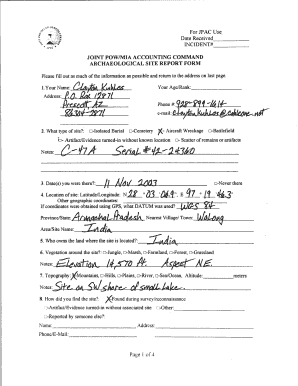 For JPAC Use
Date Received
INCIDENT#
JOINT POW/MIA ACCOUNTING COMMAND
ARCHAEOLOGICAL SITE REPORT FORM
Please fill out as much of the information as possible and return to the address on last page.
1. Your Name: Clayton Kuhles Your Age/Rank:
Address: P.O. Box 12971 Phone # 928-899-1614
Prescott, AZ e-mail:
86304-2971
2. What type of site? Isolated Burial Cemetery X Aircraft Wreckage Battlefield
Artifact/Evidence turned-in without known location Scatter of remains or artifacts
Notes: C-47A Serial #42-24360
3. Date(s) you were there? 11 Nov 2003 Never there
4. Location of site: Latitude/Longitude N 28-03.069 E 97-19.463
Other geographic coordinates:
If coordinates were obtained using GPS, what DATUM was used? WGS 84
Province/State: Arunachal Pradesh Nearest Village/Town: Walong
Area/Site Name: India
5. Who owns the land where the site is located? India
6. Vegetation around the site? Jungle, Marsh, Farmland, Forest, Grassland
Notes: Elevation 14,570 ft. Aspect N.E.
7. Topography X Mountains, Hills, Plains, River, Sea/Ocean, Altitude: meters
Notes: Site on SW shore of small lake.
8. How did you find the site? X Found during survey/reconnaissance
Artifact/Evidence turned in without associated site Other
Reported by someone else?
Name: Address:
Phone/E-Mail:
Page 1 of 4